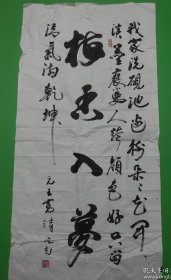 我家洗硯池边树朵朵花開
淡墨痕要人誇顏色好只留
梅香入夢
清氣滿乾坤
元王冕詩